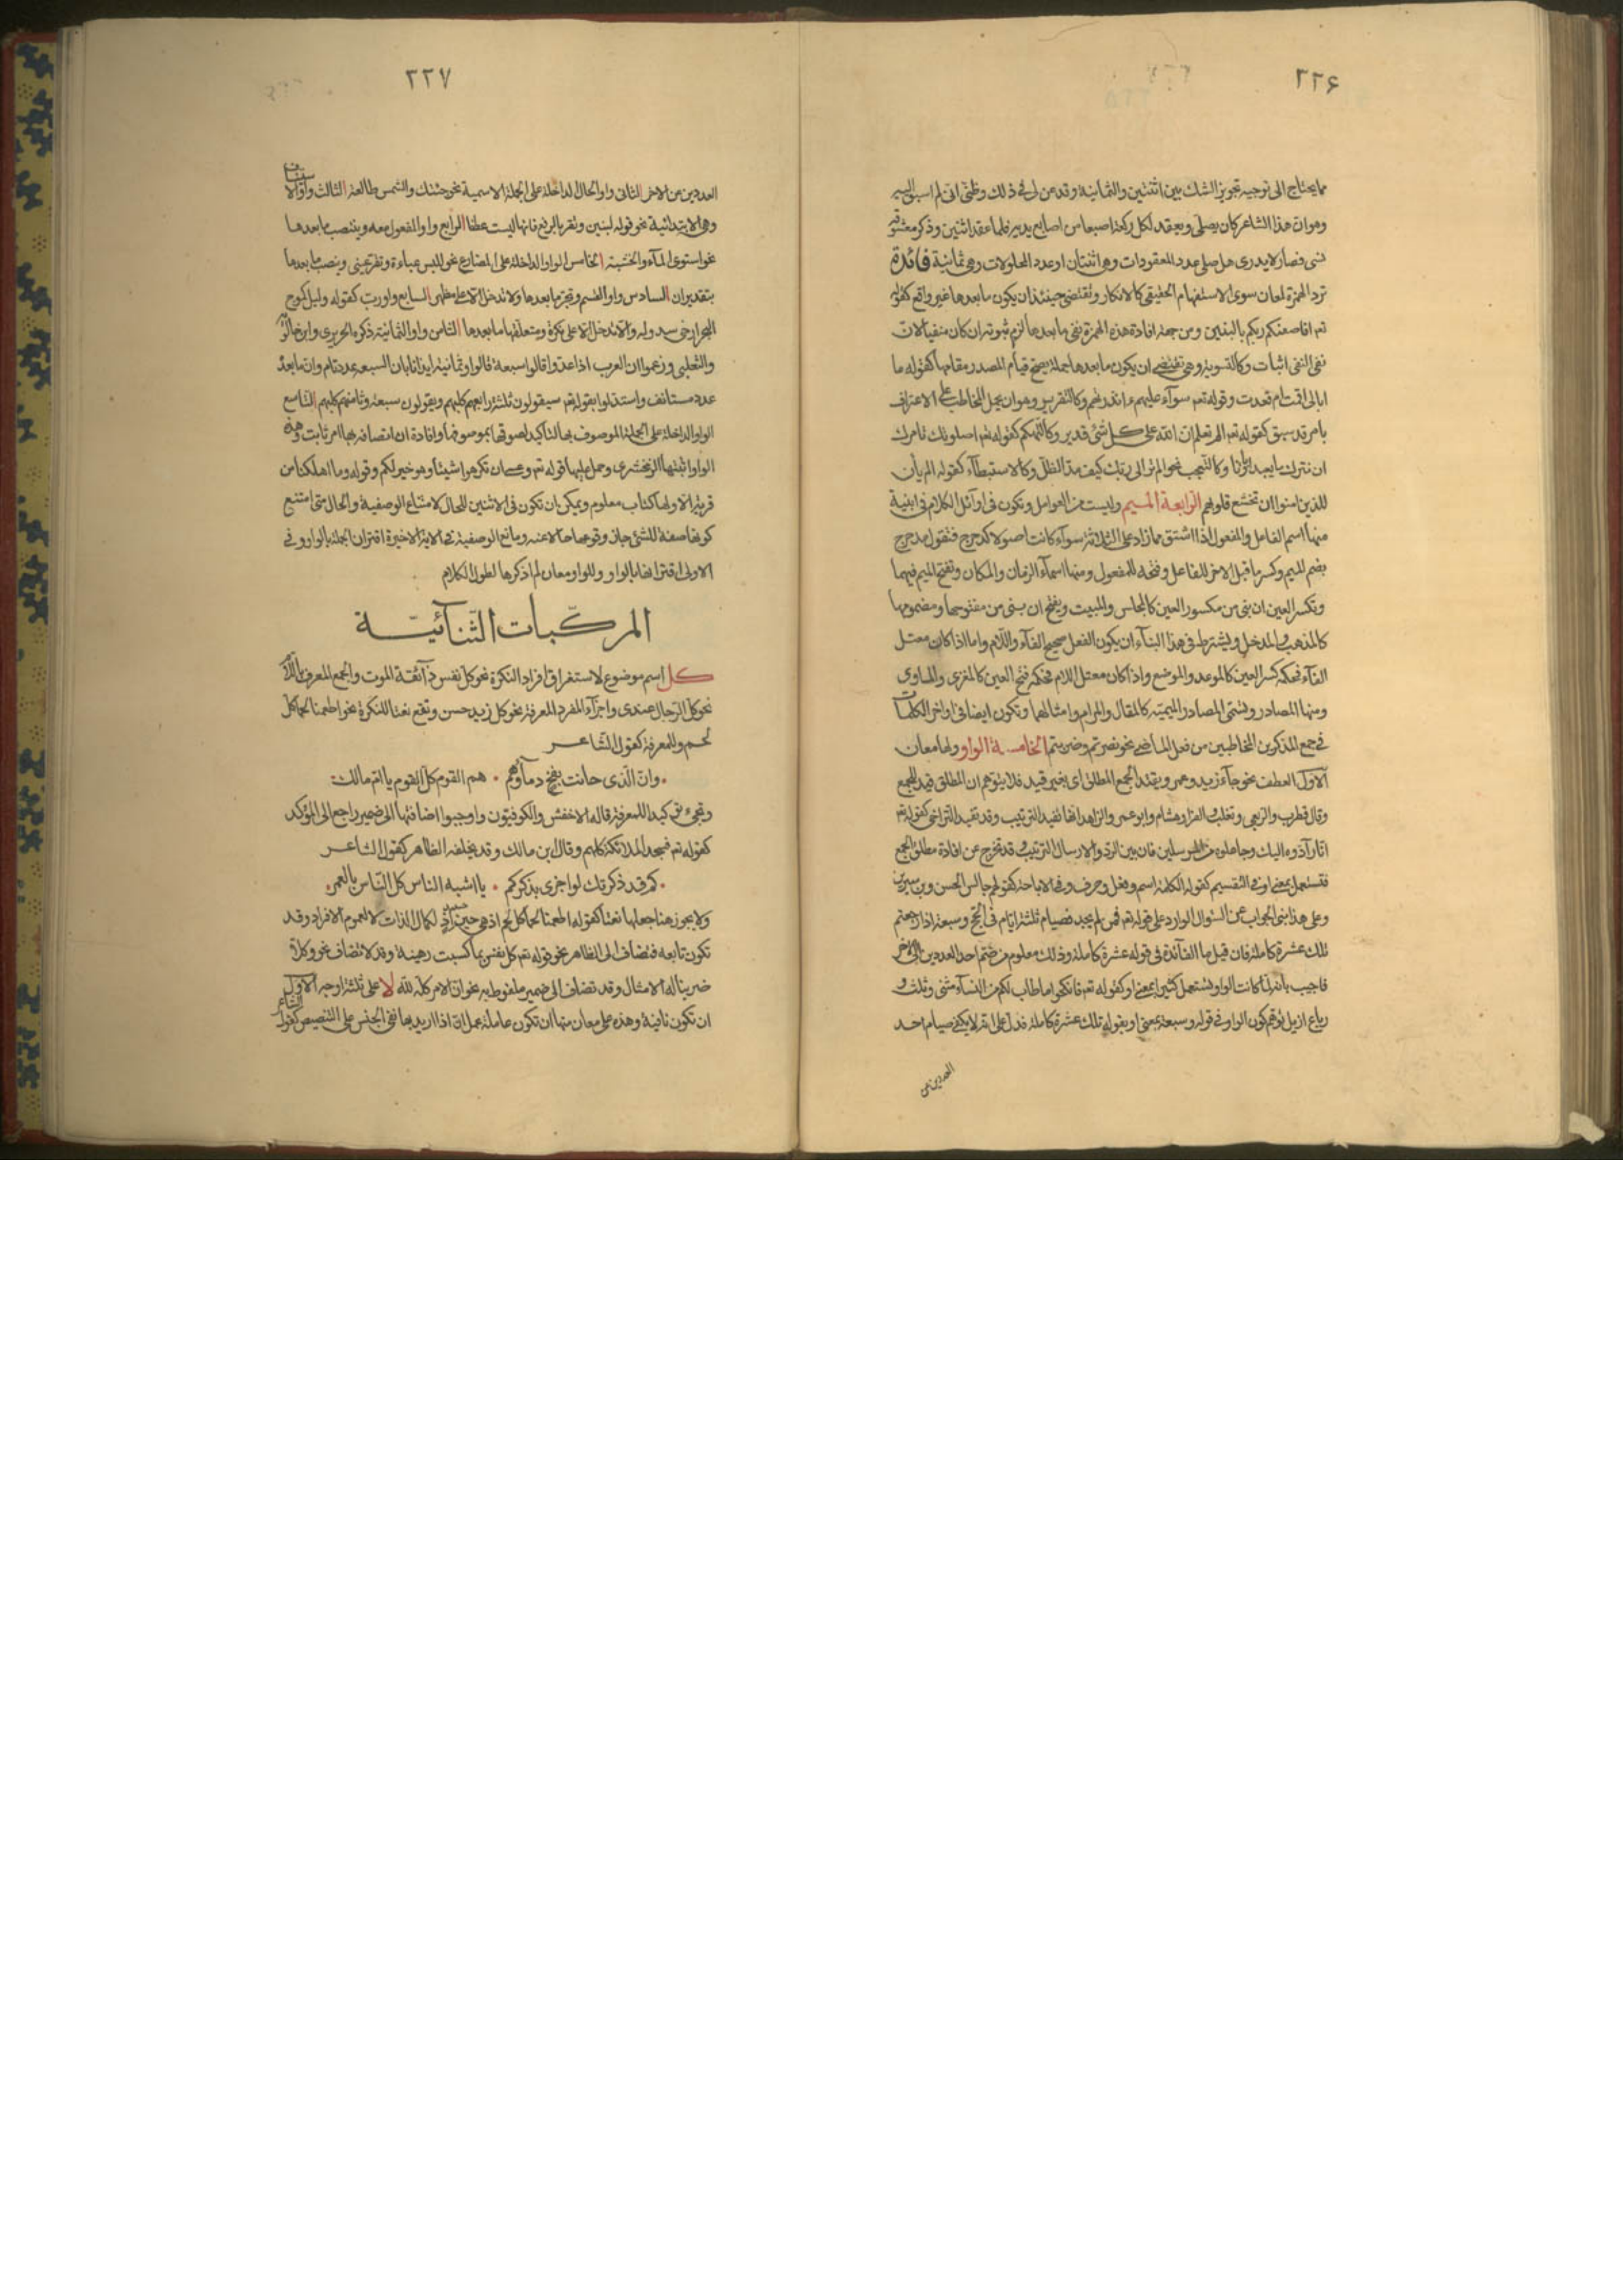 ٢٢۶
مما يحتاج الى توجيه تجويز الشك بين اثنتين والثمانية وقد عن لى فى ذلك وظنى انى لم اسبق اليه
وهو ان هذا الشاعر كان يصلى ويعقد لكل ركعة اصبعا من اصابع يديه فلما عقد اثنتين وذكر معشوقه
نسى فصار لا يدرى هل صلى عدد المعقودات وهى اثنتان او عدد المحلولات وهى ثمانية فائدة
ترد الهمزة لمعان سوى الاستفهام الحقيقى كالانكار وتقتضى حينئذ ان يكون ما بعدها غير واقع كقوله
تعم افاصفيكم ربكم بالبنين ومن جهة افادة هذه الهمزة نفى ما بعدها لزم ثبوته ان كان منفيا لان
نفى النفى اثبات وكالتسوية وهى تقتضى ان يكون ما بعدها جملة يصح قيام المصدر مقامها كقوله ما
ابالى اقمت ام قعدت وقوله تعم سوآء عليهم ءانذرتهم وكالتقرير وهو ان يحمل المخاطب على الاعتراف
بامر قد سبق كقوله تعم الم تعلم ان الله على كل شئ قدير وكالتهكم كقوله تعم اصلوتك تامرك
ان نترك ما يعبد ابآؤنا وكالتعجب نحو الم تر الى ربك كيف مد الظل وكالاستبطآء كقوله الم يأن
للذين امنوا ان تخشع قلوبهم الرابعة الميم وليست من العوامل وتكون فى اوآئل الكلام فى ابنية
منها اسم الفاعل والمفعول اذا اشتق مما زاد على الثلاثة سوآء كانت اصولا كدحرج فتقول مدحرج
بضم الميم وكسر ما قبل الاخر للفاعل وفتحه للمفعول ومنها اسمآء الزمان والمكان وتفتح الميم فيهما
وتكسر العين ان بنى من مكسور العين كالمجلس والمبيت ويفتح ان بنى من مفتوحها ومضمومها
كالمذهب والمدخل ويشترط فى هذا البنآء ان يكون الفعل صحيح الفآء واللام واما اذا كان معتل
الفآء فحكمه كسر العين كالموعد والموضع واذا كان معتل اللام فحكمه فتح العين كالمغزى والماوى
ومنها المصادر وتسمى المصادر الميمية كالمقال والمرام وامثالهما وتكون ايضا فى اواخر الكلمات
فى جمع المذكرين المخاطبين من فعل الماضى نحو نصرتم وضربتم الخامسة الواو ولها معان
الاول العطف نحو جآء زيد وعمر ويفيد الجمع المطلق اى بغير قيد فلا يتوهم ان المطلق قيد للجمع
وقال قطرب والربعى وثعلب والفرا وهشام وابو عمر والزاهد انها تفيد الترتيب وقد تفيد التراخى كقوله تعم
انا رآدوه اليك وجاعلوه من المرسلين فان بين الرد والارسال الترتيب قد تخرج عن افادة مطلق الجمع
فتستعمل بمعنى او فى التقسيم كقوله الكلمة اسم وفعل وحرف وفى الاباحة كقولهم جالس الحسن وبن سيرين
وعلى هذا بنى الجواب عن السؤال الوارد على قوله تعم فمن لم يجد فصيام ثلثة ايام فى الحج وسبعة اذا رجعتم
تلك عشرة كاملة فان قيل ما الفآئدة فى قوله عشرة كاملة وذلك معلوم من ضم احد العددين الى الاخر
فاجيب بانه لما كانت الواو تستعمل كثيرا بمعنى او كقوله تعم فانكحوا ما طاب لكم من النسآء مثنى وثلث و
رباع ازيل توهم كون الواو فى قوله وسبعة بمعنى او بقوله تلك عشرة كاملة فدل على انه لا يكفى صيام احد
العددين من
٢٢٧
العددين من الاخر الثانى واو الحال الداخلة على الجملة الاسمية نحو جئتك والشمس طالعة الثالث واو الاستيناف
وهى الابتدائية نحو قوله لنبين ونقر بالرفع فانها ليست عطفا الرابع واو المفعول معه وينتصب ما بعدها
نحو استوى المآء والخشبة الخامس الواو الداخلة على المضارع نحو للبس عباءة وتقر عينى وينصب ما بعدها
بتقدير ان السادس واو القسم وتجر ما بعدها ولا تدخل الا على مظهر السابع واو رب كقوله وليل كموج
البحر ارخى سدوله ولا تدخل الا على نكرة ومتعلقها ما بعدها الثامن واو الثمانية ذكره الحريرى وابن خالويه
والثعلبى وزعموا ان العرب اذا عدوا قالوا سبعة قالوا وثمانية ايذانا بان السبعة عدد تام وان ما بعد
عدد مستانف واستدلوا بقوله تعم سيقولون ثلثة رابعهم كلبهم ويقولون سبعة وثامنهم كلبهم التاسع
الواو الداخلة على الجملة الموصوف بها لتأكيد لصوقها بموصوفها وافادة ان اتصافه بها امر ثابت وهذه
الواو اثبتها الزمخشرى وحمل عليها قوله تعم وعسى ان تكرهوا شيئا وهو خير لكم وقوله وما اهلكنا من
قرية الا ولها كتاب معلوم ويمكن ان تكون فى الاثنين للحال لامتناع الوصفية والحال متى امتنع
كونها صفة للشئ جاز وقوعها حالا عنه ومانع الوصفية فى الاية الاخيرة اقتران الجملة بالواو وفى
الاولى اقترانها بالواو وللواو معان لم اذكرها لطول الكلام
المركبات الثنآئية
كل اسم موضوع لاستغراق افراد النكرة نحو كل نفس ذآئقة الموت والجمع المعرف باللام
نحو كل الرجال عندى واجزآء المفرد المعرفة نحو كل زيد حسن وتقع نعتا للنكرة نحو اطعمنا لحما كل
لحم وللمعرفة كقول الشاعر
وان الذى حانت بفلج دمآؤهم ٠ هم القوم كل القوم يا ام مالك
وتجئ توكيدا للمعرفة قاله الاخفش والكوفيون واوجبوا اضافتها الى ضمير راجع الى المؤكد
كقوله تعم فسجد الملائكة كلهم وقال بن مالك وقد يخلفه الظاهر كقول الشاعر
كم قد ذكرتك لو اجزى بذكركم ٠ يا اشبه الناس كل الناس بالقمر
ولا يجوز هنا جعلها نعتا كقوله اطعمنا لحما كل لحم اذ هى حينئذ لكمال الذات لا لعموم الافراد وقد
تكون تابعة فتضاف الى الظاهر نحو قوله تعم كل نفس بما كسبت رهينة وقد لا تضاف نحو وكلا
ضربنا له الامثال وقد تضاف الى ضمير ملفوظ به نحو ان الامر كله لله لا على ثلثة اوجه الاول
ان تكون نافية وهذه على معان منها ان تكون عاملة عمل ان اذا اريد بها نفى الجنس على التنصيص كقول الشاعر